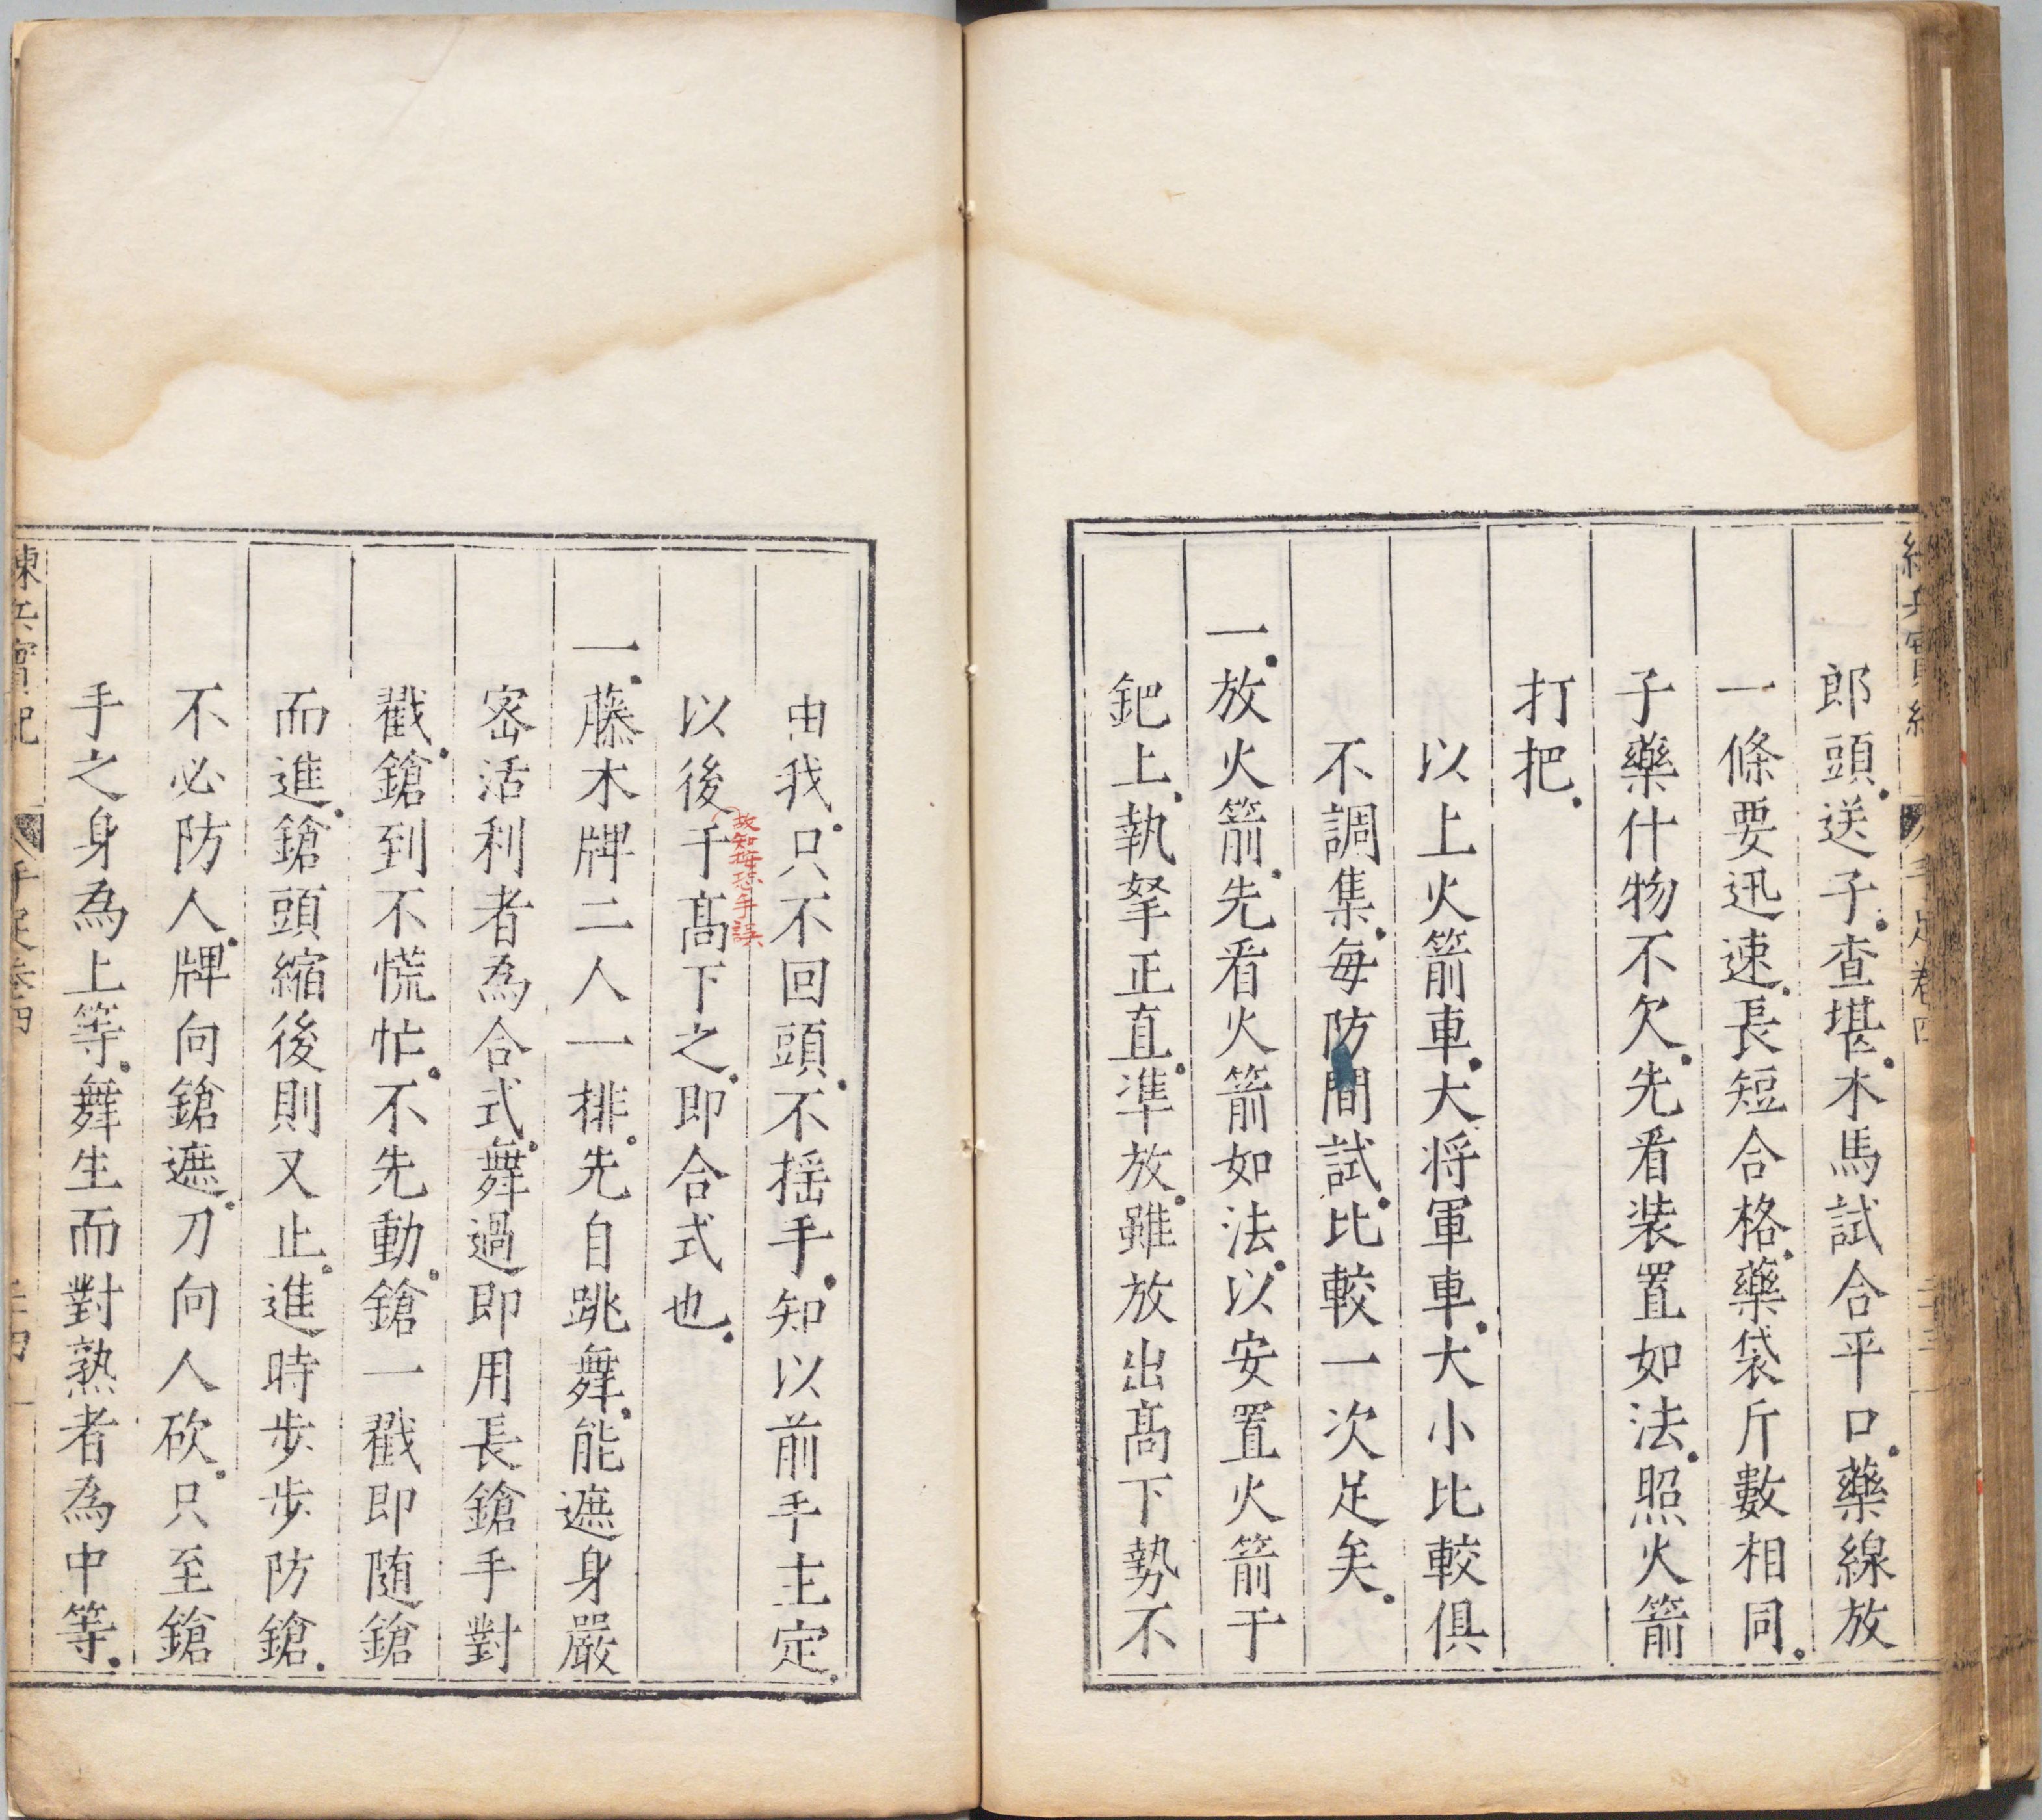 郎頭送子查堪木馬試合平口藥線放
一條要迅速長短合格藥袋斤數相同
子藥什物不欠先看裝置如法照火箭
打把
以上火箭車大将軍車大小比較俱
不調集每防間試比較一次足矣
一放火箭先看火箭如法以安置火箭于
鈀上執拏正直準放雖放出髙下勢不
由我只不回頭不揺手知以前手主定
以後千髙下之即合式也
故知每恐手誤
一藤木牌二人一排先自跳舞能遮身嚴
宻活利者為合式舞過即用長鎗手對
戳鎗到不慌忙不先動鎗一戳即随鎗
而進鎗頭縮後則又止進時步步防鎗
不必防人牌向鎗遮刀向人砍只至鎗
手之身為上等舞生而對熟者為中等
練兵實紀 手足卷四 二十四